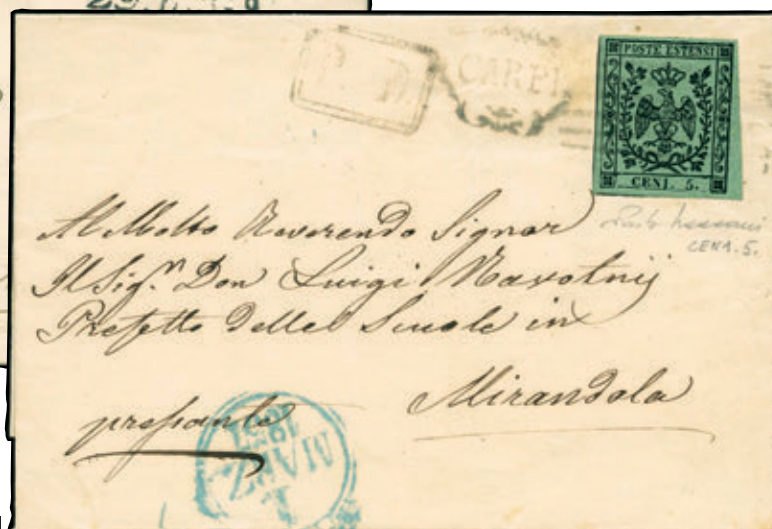 P. D.
CARPI
POSTE ESTENSI
CENI. 5.
CENI. 5.
Al Molto Reverendo Signor
Il Sig.r Don Luigi
Prefetto delle Scuole in
Mirandola
pressante
MARZ